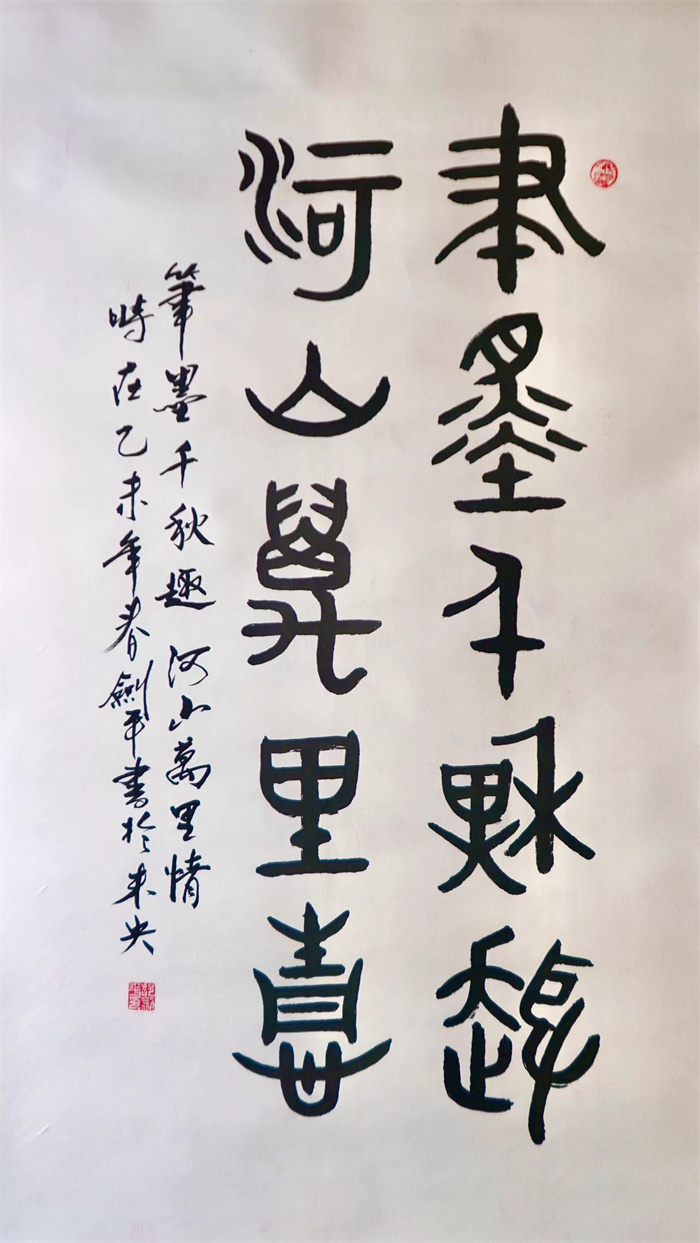 聿墨千秋趣
河山萬里情
筆墨千秋趣 河山萬里情
時在乙未年春劍平書於未央